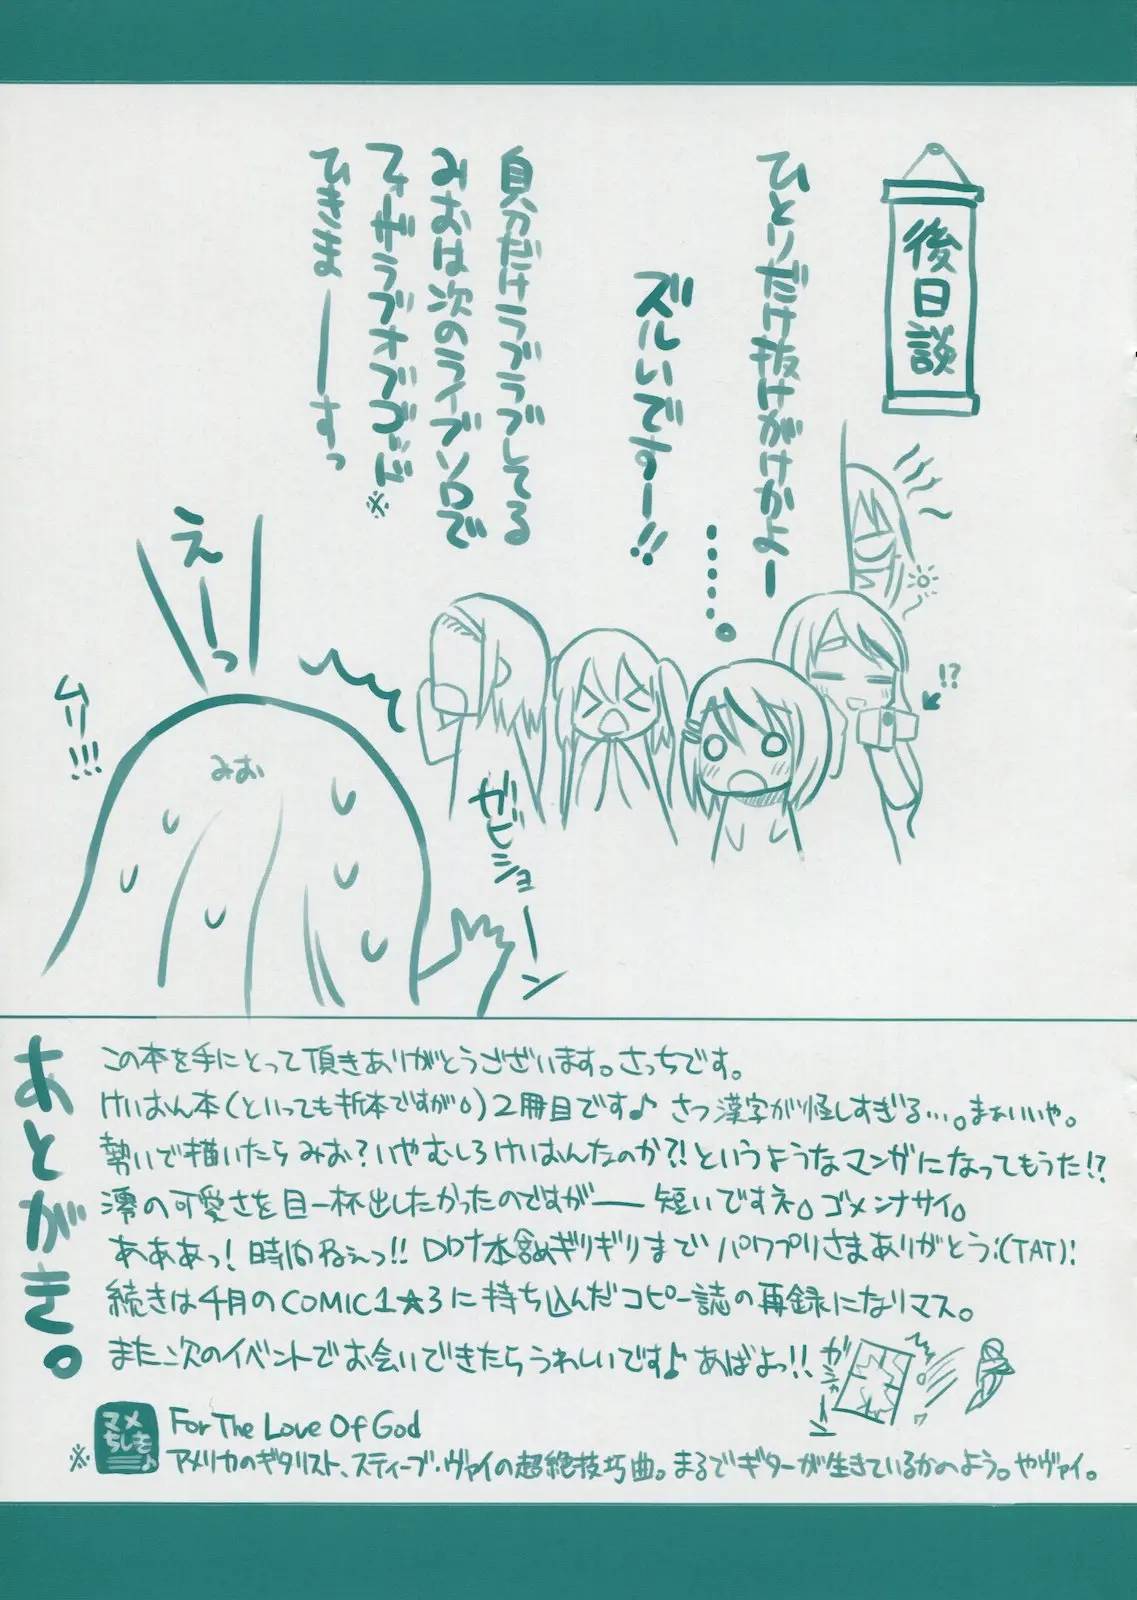 後日談
ひとりだけ抜けがけかよー
ズルいですー!!
自分だけラブラブしてる
みおは次のライブソロで
フォーザラブオブゴッド※
ひきまーーーすっ
!?
えーっ
ムリ!!!
みお
ガビショーン
あとがき。
この本を手にとって頂きありがとうございます。さっちです。
けいおん本(といっても折本ですが。)2冊目です♪ さっ漢字が怪しすぎる…。まぁいいや。
勢いで描いたらみお?いやむしろけいおんなのか?!というようなマンガになってもうた!?
澪の可愛さを目一杯出したかったのですがー 短いですネ。ゴメンナサイ。
あああっ!時間ねぇっ!! ギリギリまで パワプリさまありがとう:(TAT):
続きは4月のCOMIC1☆3に持ち込んだコピー誌の再録になりマス。
また次のイベントでお会いできたらうれしいです♪ あばよっ!!
ガシャーン
マメちしき♪
For The Love Of God
※アメリカのギタリスト、スティーブ・ヴァイの超絶技巧曲。まるでギターが生きているかのよう。ヤヴァイ。